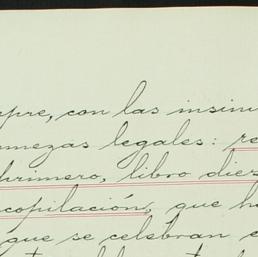 pre, con las insinu
mezas legales: re
primero, libro diez
copilación, que h
que se celebran e